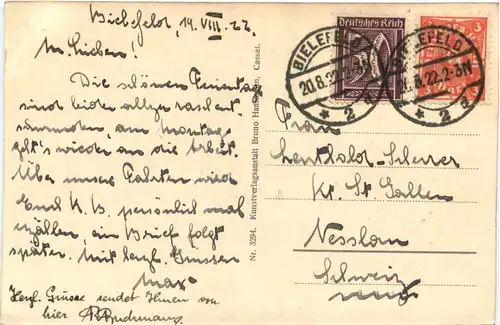 Bielefeld, 19. VIII. 22.
M. Lieben!
Die schönen Ferientage
sind leider allzu rasch ent-
schwunden, am Montag
geht's wieder an die Arbeit.
Über unsere Fahrten wird
Euch K. B. persönlich mal
erzählen, ein Brief folgt
später. Mit herzl. Grüssen
Max
Herzl. Grüsse sendet Ihnen von
hier
Nr. 3294. Kunstverlagsanstalt Bruno Hansmann, Cassel.
Deutsches Reich
BIELEFELD
20.8.22.2-3N
* 2 a
BIELEFELD
20.8.22.2-3N
* 2 a
3
Frau
Scherrer
Kt. St. Gallen
Nesslau
Schweiz